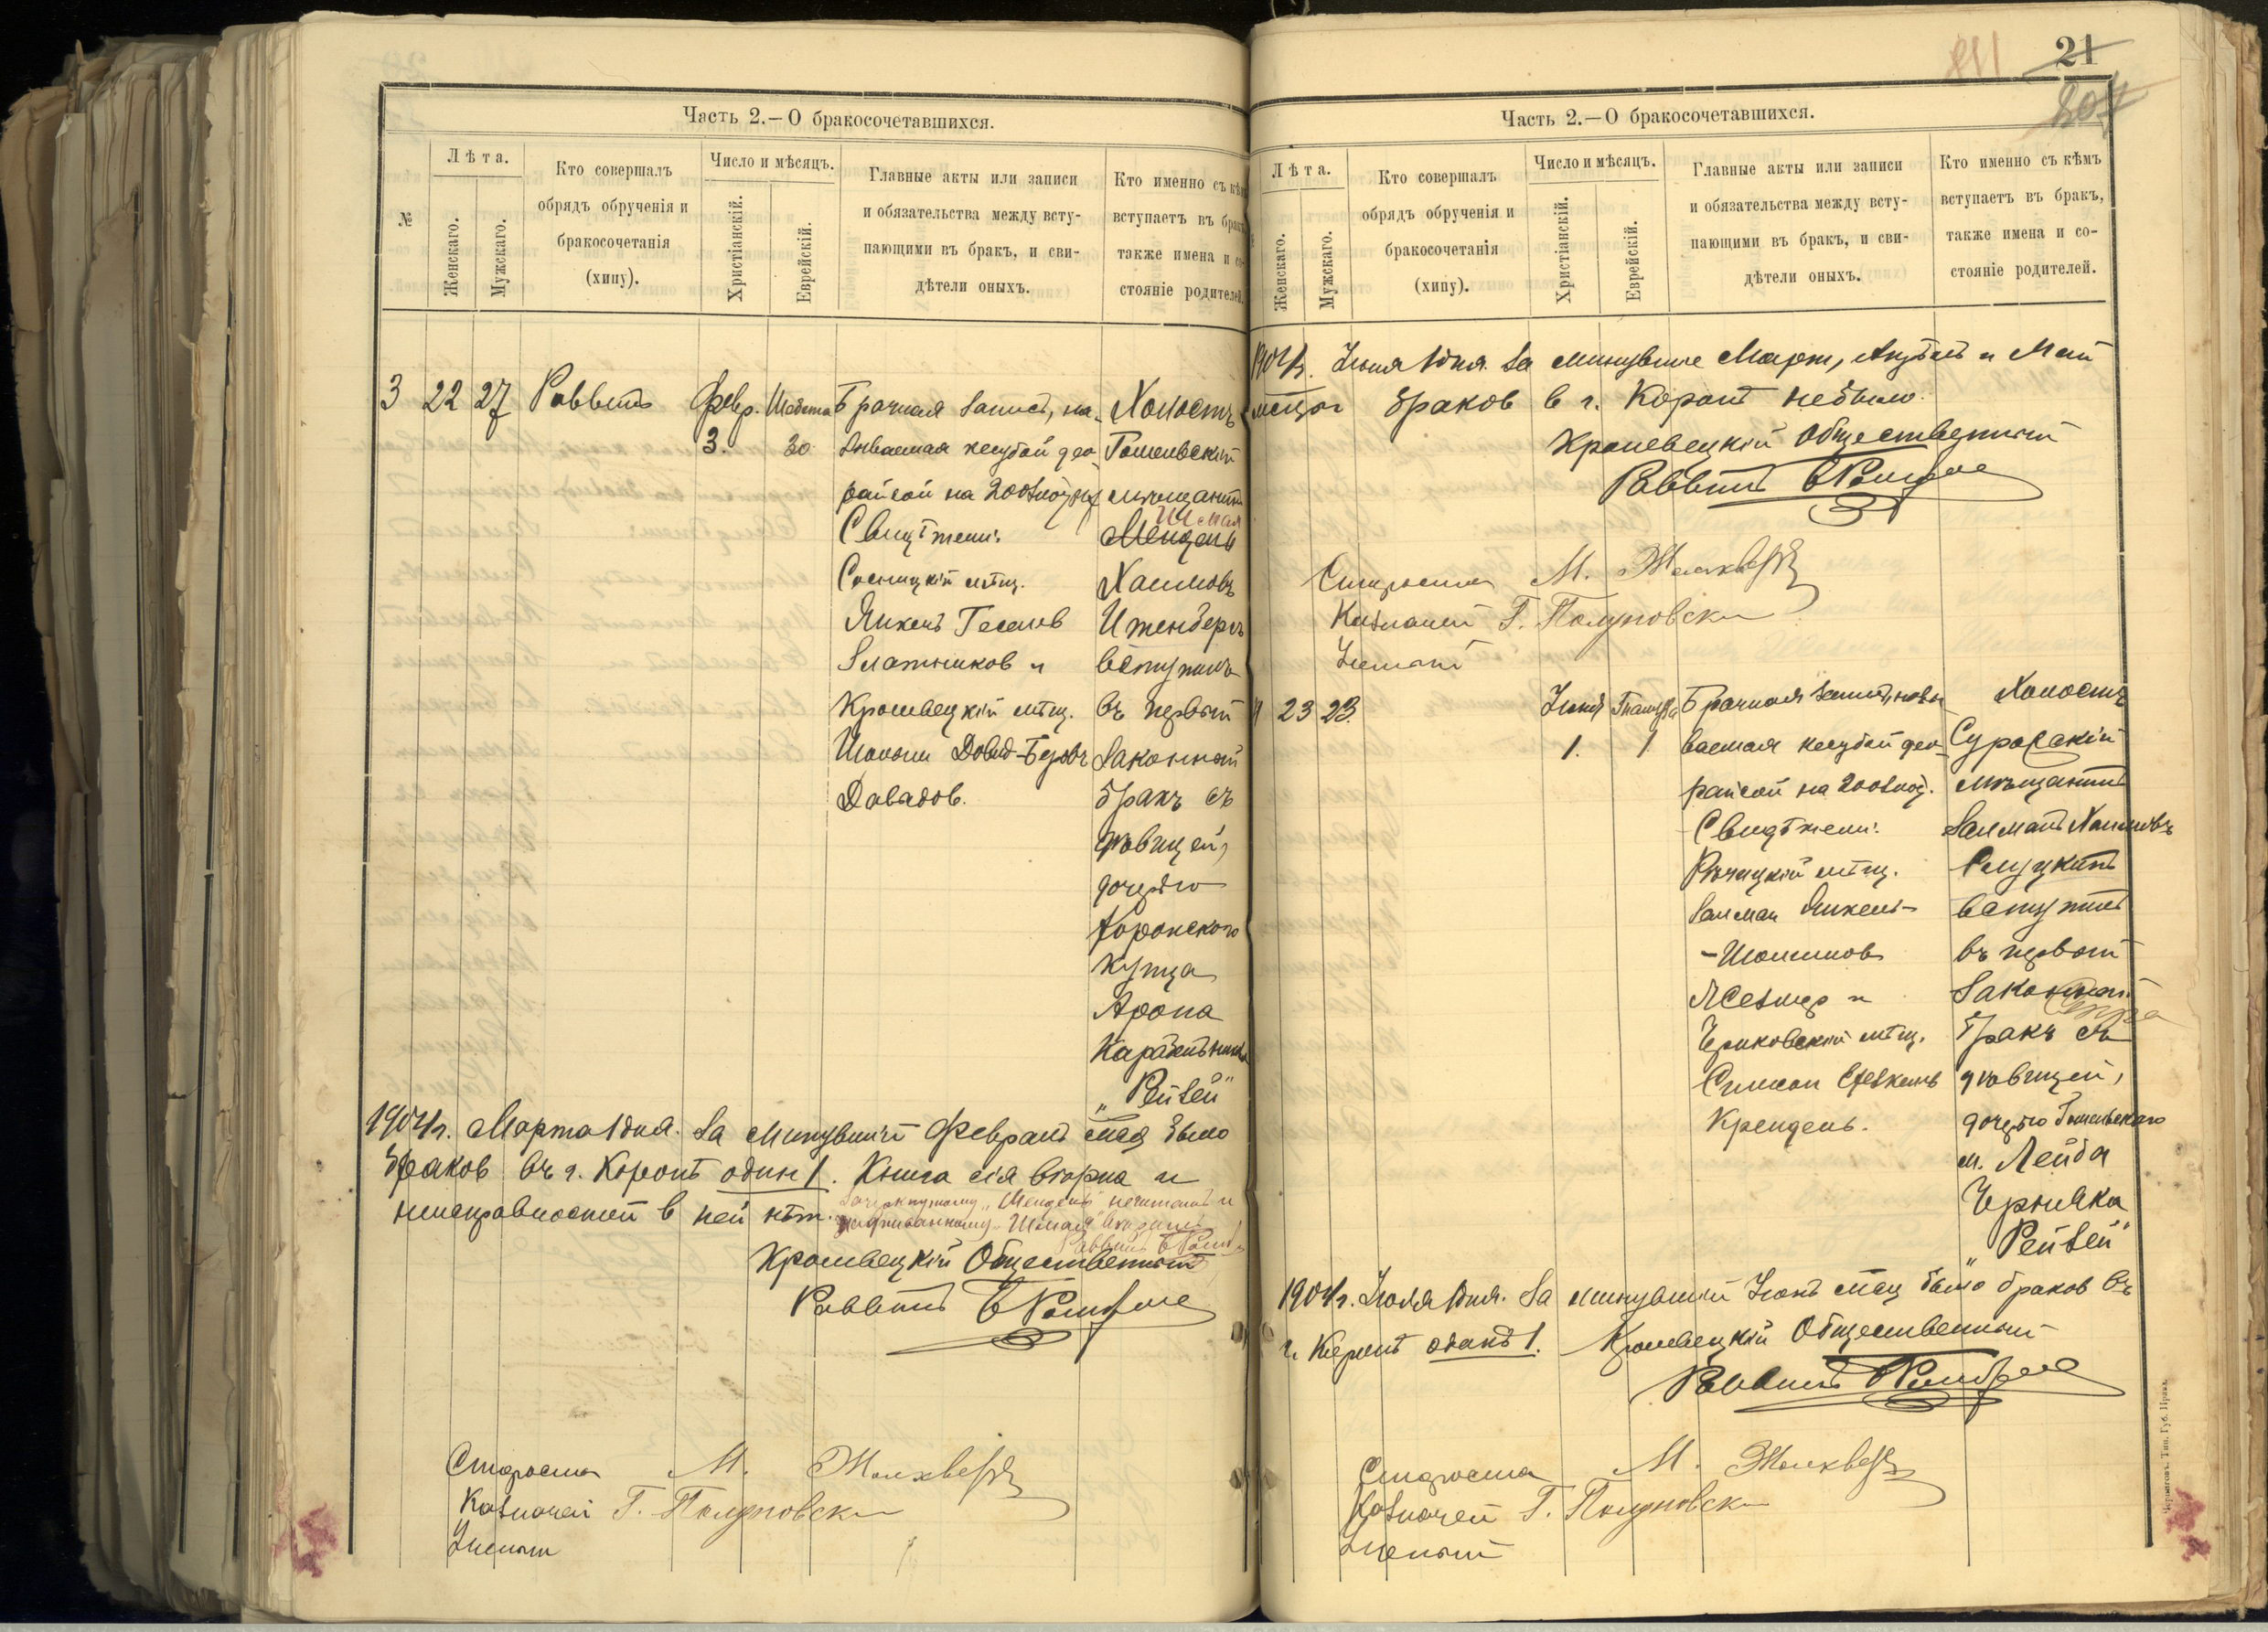 Часть 2.—О бракосочетавшихся.
№
Лѣта.
Женскаго.
Мужскаго.
Кто совершалъ
обрядъ обрученія и
бракосочетанія
(хипу).
Число и мѣсяцъ.
Христіанскій.
Еврейскій.
Главные акты или записи
и обязательства между всту-
пающими въ бракъ, и сви-
дѣтели оныхъ.
Кто именно съ кѣмъ
вступаетъ въ бракъ
также имена и со-
стояніе родителей.
3 22 27 Раввинъ Февр. Шевата
3. 30
Брачная запись, на-
зываемая кесубой део-
райсой на 200 злот
Свидѣтели:
Сосницкій мѣщ.
Янкель Геселев
Златников и
Кролевецкій мѣщ.
Шолом Довид-Беров
Давадов.
Холостъ
Гомельскій
мѣщанинъ
Шмая
Мендель
Хаимовъ
Итенбергъ
вступилъ
въ первый
законный
бракъ съ
дѣвицей,
дочерью
Коропского
купца
Арона
„Рейзей"
1904 г. Марта 1 дня. За минувший Февраль мсц было
браков въ г. Коропѣ один 1. Книга сія вѣрна и
неисправностей в ней нѣт.
Зачеркнутому „Мендель" нечитать и
надписанному „Шмая" вѣрить
Раввинъ
Кролевецкій Общественный
Раввинъ
Староста М.
Казначей Г.
Ученый
21
811
807
Часть 2.—О бракосочетавшихся.
Лѣта.
Женскаго.
Мужскаго.
Кто совершалъ
обрядъ обрученія и
бракосочетанія
(хипу).
Число и мѣсяцъ.
Христіанскій.
Еврейскій.
Главные акты или записи
и обязательства между всту-
пающими въ бракъ, и сви-
дѣтели оныхъ.
Кто именно съ кѣмъ
вступаетъ въ бракъ,
также имена и со-
стояніе родителей.
1904 г. Июня 1 дня. За минувшие Март, Апрѣль и Май
мсцы браков в г. Коропѣ небыло.
Кролевецкій Общественный
Раввинъ
Староста М.
Казначей Г.
Ученый
4 23 23 Июня
1. 1
Брачная запись, назы-
ваемая кесубой део-
райсой на 200 злот.
Свидѣтели:
Рѣчицкій мѣщ.
Залман Янкель-
-Шоломов
и
Чериковский мѣщ.
Симон
Крендель.
Холостъ
Суражскій
мѣщанинъ
Залманъ Хаимовъ
Слуцкинъ
вступилъ
въ первый
законный
бракъ съ
дѣвицей,
дочерью Гомельскаго
м. Лейба
Черняка
„Рейзей"
1904 г. Июля 1 дня. За минувший Июнь мсц было браков въ
г. Коропѣ одинъ 1. Кролевецкій Общественный
Раввинъ
Староста М.
Казначей Г.
Ученый
Черниговъ. Тип. Губ. Правл.